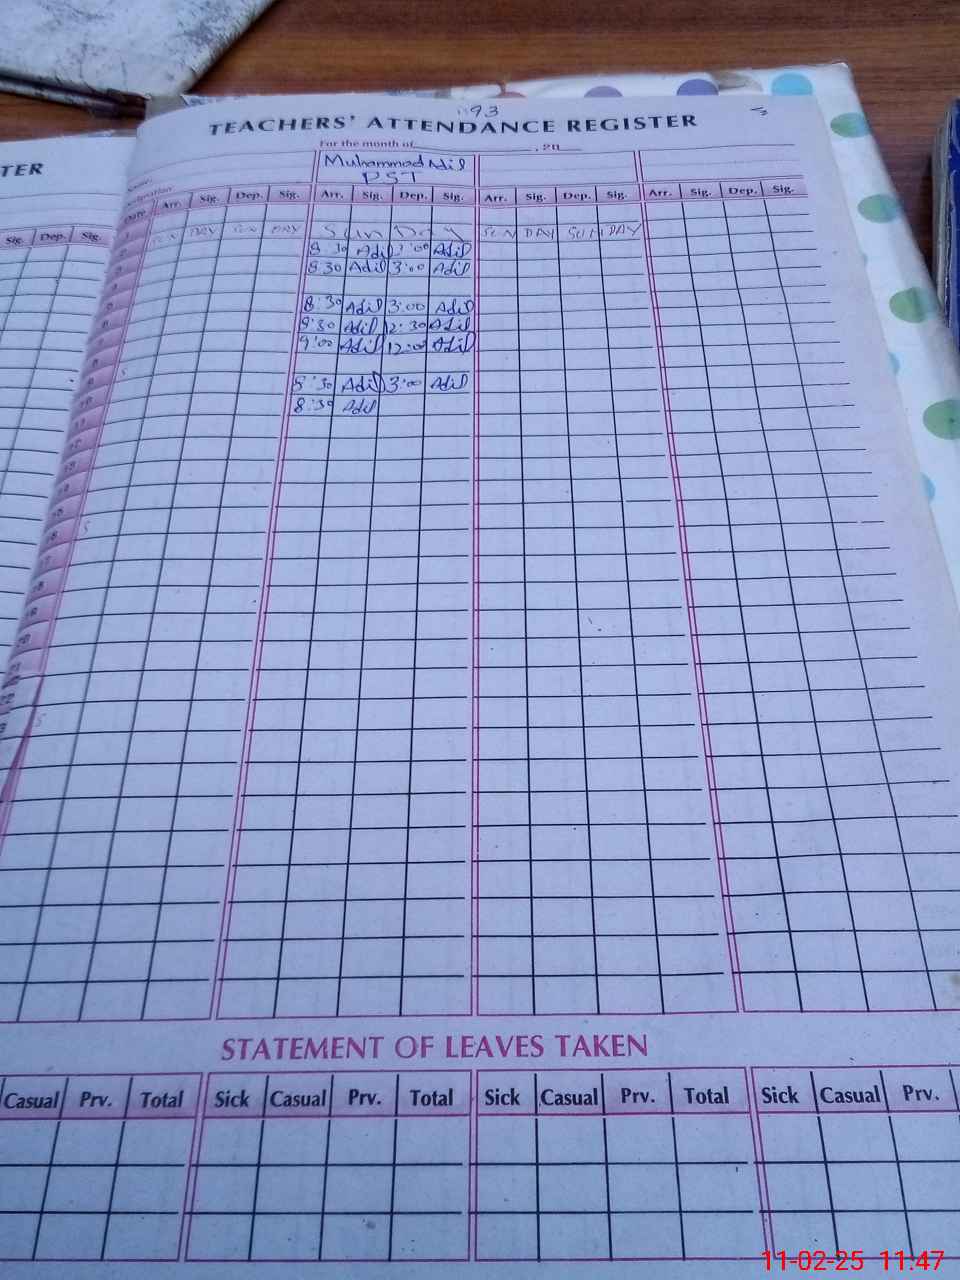 93
TEACHERS' ATTENDANCE REGISTER
TER
For the month of , 20
Muhammad Adil
PST
Arr. Sig. Dep. Sig. Arr. Sig. Dep. Sig. Arr. Sig. Dep. Sig. Arr. Sig. Dep. Sig.
Sig. Dep. Sig.
SUN DAY SUN DAY Sun Day SUN DAY SUN DAY
8:30 Adil 3:00 Adil
8:30 Adil 3:00 Adil
8:30 Adil 3:00 Adil
8:30 Adil 12:30 Adil
9:00 Adil 12:00 Adil
8:30 Adil 3:00 Adil
8:30 Adil
STATEMENT OF LEAVES TAKEN
Casual Prv. Total Sick Casual Prv. Total Sick Casual Prv. Total Sick Casual Prv.
11-02-25 11:47